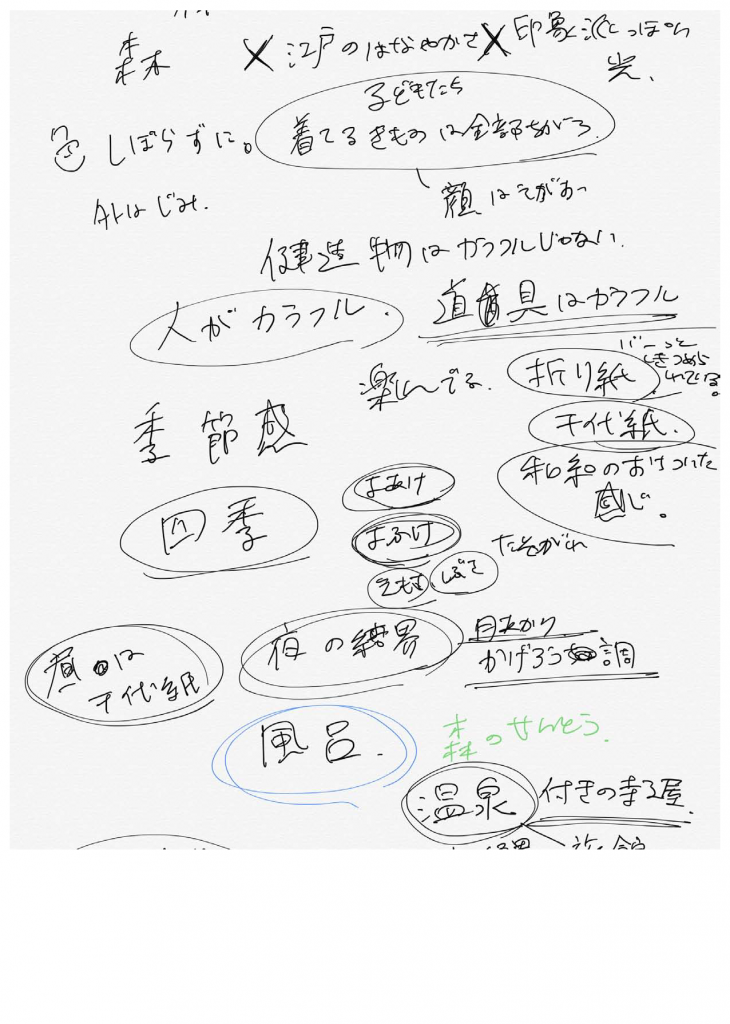 森 × 江戸のはなやかさ × 印象派っぽい
光、
色 しぼらずに。
子どもたち
着てるきものは全部ちがう。
外はじみ。
顔はえがお
建造物はカラフルじゃない。
人がカラフル。
道具はカラフル
楽しんでる。
折り紙
バーっと
しきつめら
れている。
千代紙。
和紙のおりつけた
感じ。
季節感
四季
よあけ
よふけ
たそがれ
夜の結界
月あかり
かげろう 調
は
千代紙
風呂。
森のせんとう。
温泉 付きの寺子屋